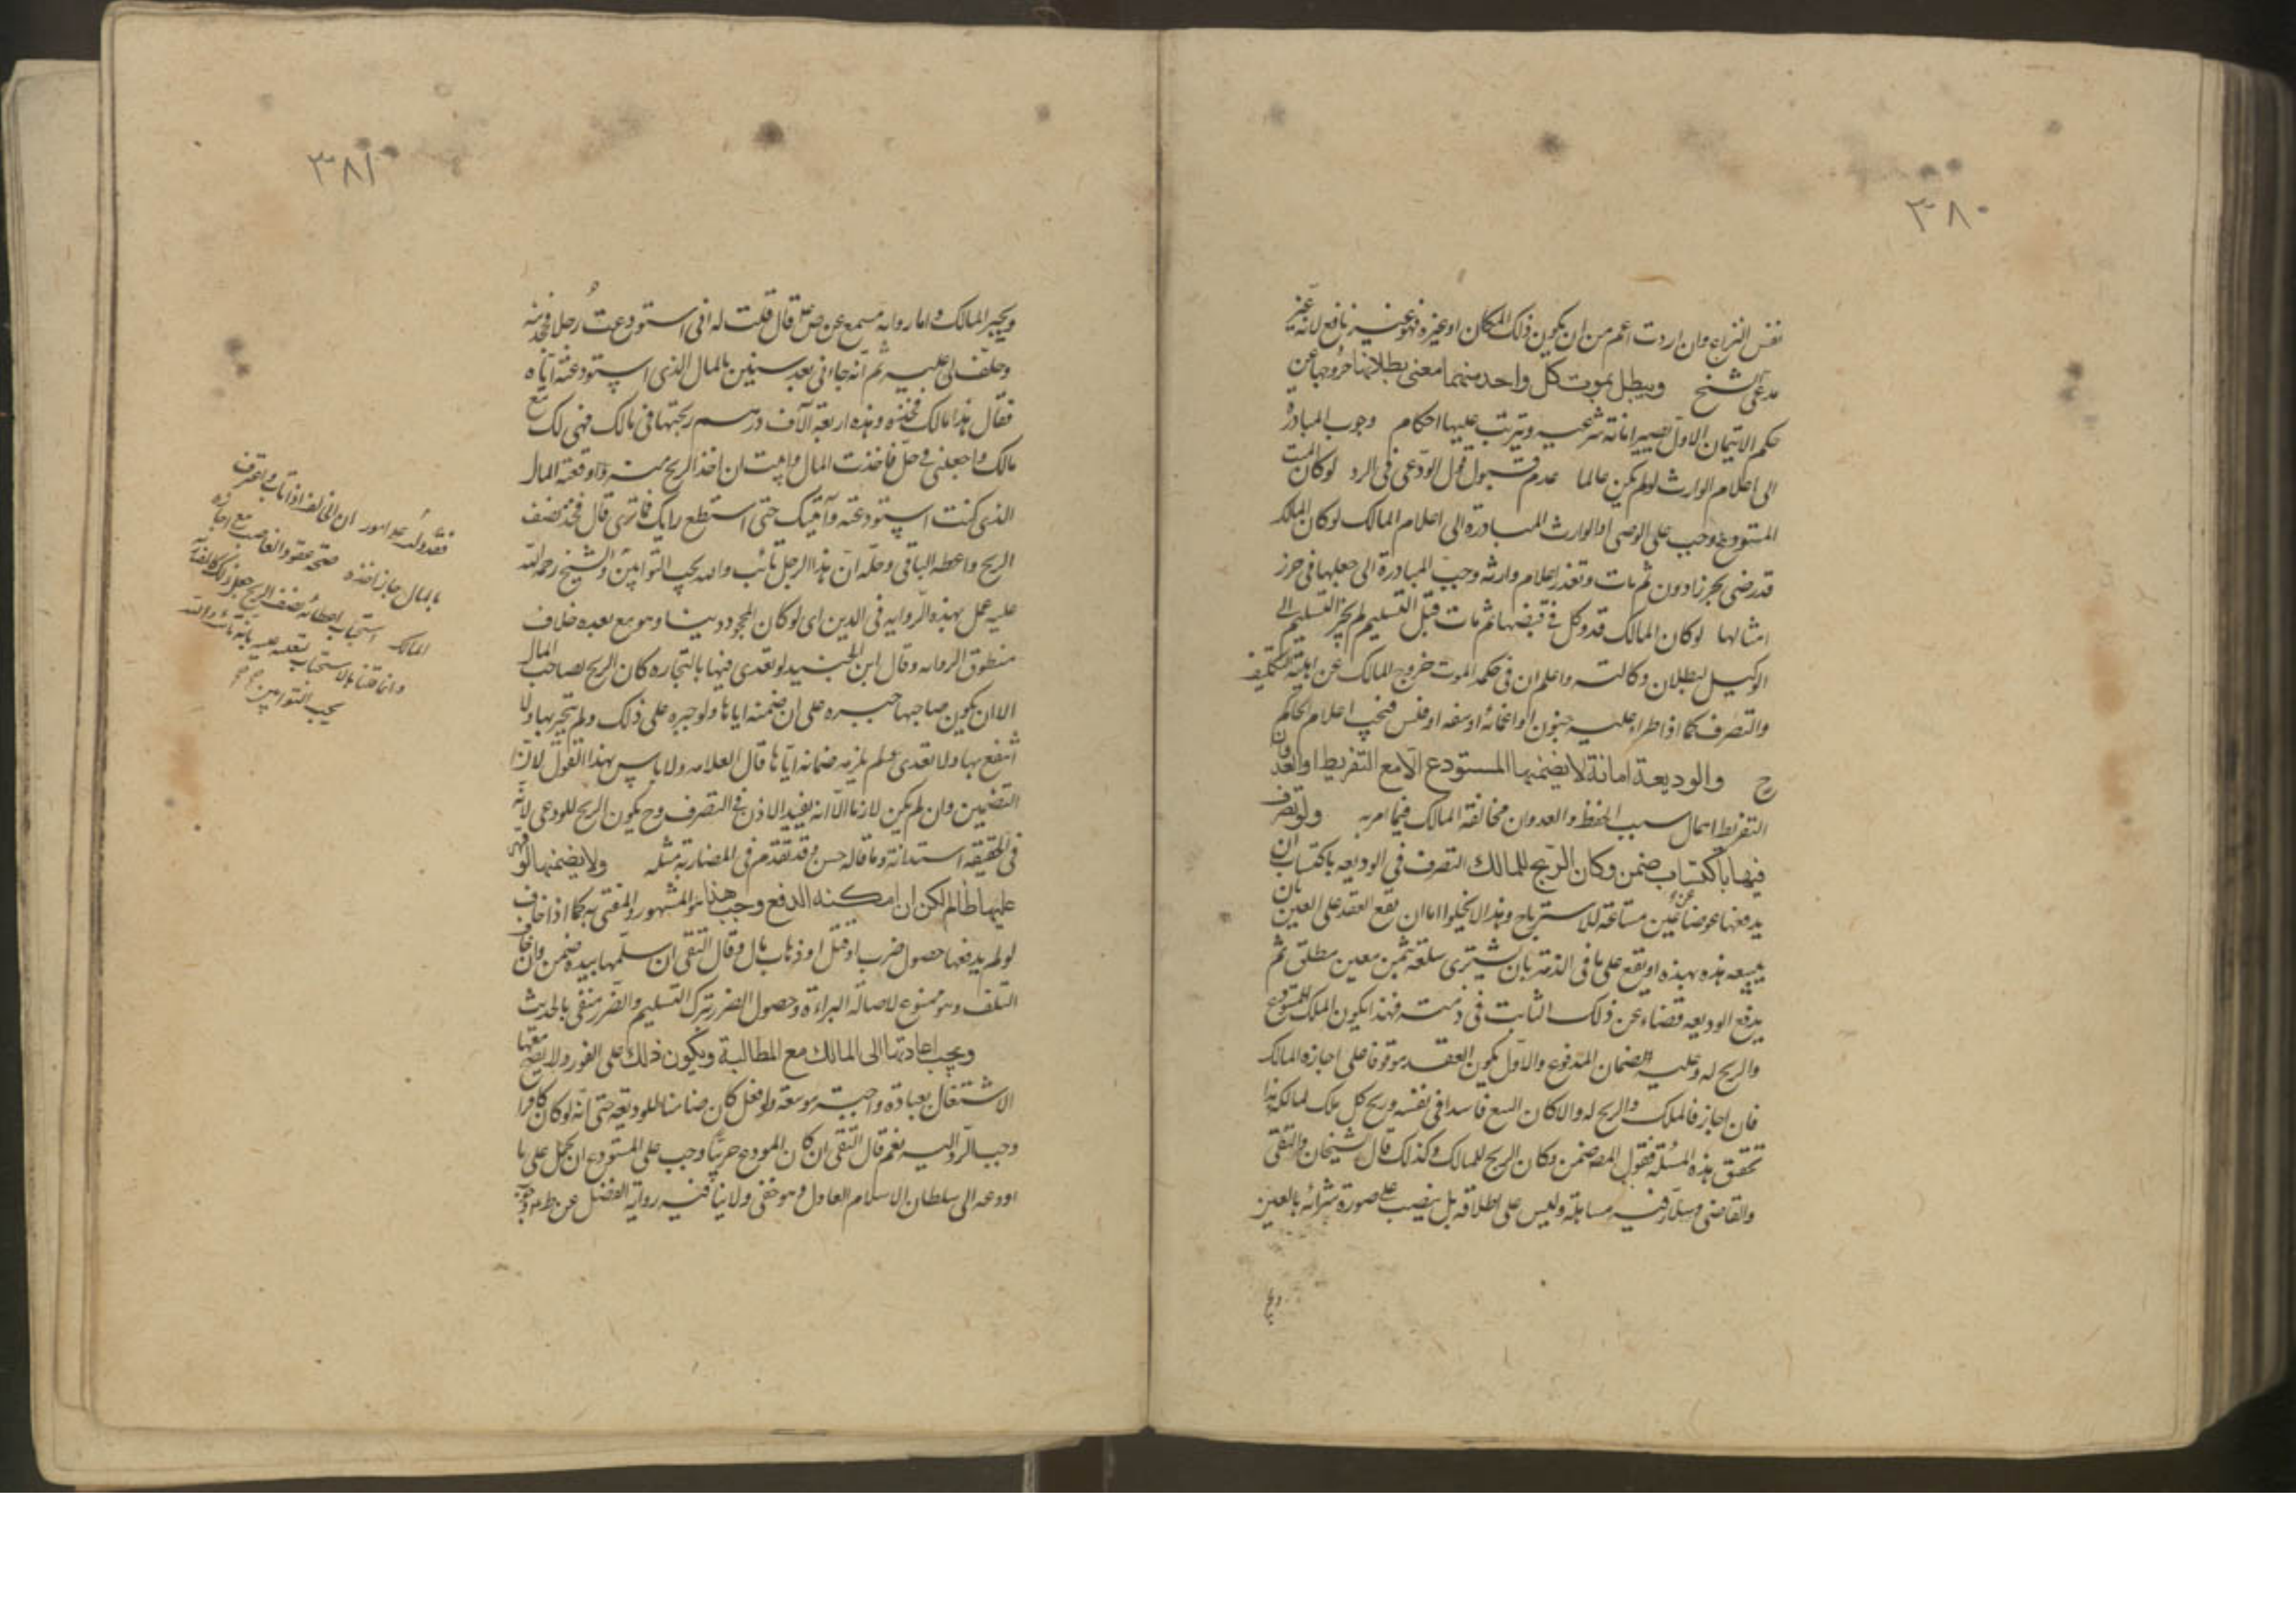 ٣٨٠
نفس النزاع وان اردت اعم من ان يكون ذلك المكان او غيره فهو غير نافع لانه غير
مدعى الشيخ ويبطل بموت كل واحد منهما معنى بطلانها خروجها عن
حكم الايتمان الاول فيصير امانة شرعيه ويترتب عليها احكام وجوب المبادرة
الى اعلام الوارث لو لم يكن عالما عدم قبول قول الودعى فى الرد لو كان الميت
المستودع وجب على الوصى او الوارث المبادرة الى اعلام المالك لو كان المالك
قد رضى بحرز ادون ثم مات وتعذر اعلام وارثه وجب المبادرة الى جعلها فى حرز
امثالها لو كان المالك قد وكل فى قبضها ثم مات قبل التسليم لم يجز التسليم الى
الوكيل لبطلان وكالته واعلم ان فى حكم الموت خروج المالك عن اهلية التكليف
والتصرف كما اذا طراء عليه جنون او اغماء او سفه او فلس فيجب اعلام الحاكم
ج والوديعة امانة لا يضمنها المستودع الا مع التفريط او العدوان
التفريط اهمال سبب الحفظ والعدوان مخالفة المالك فيما امر به ولو تصرف
فيها باكتساب ضمن وكان الربح للمالك التصرف فى الوديعه باكتساب ان
يدفعها عوضا عن عين مبتاعة للاسترباح وهذا لا يخلو اما ان يقع العقد على العين بان
يبيعه هذه بهذه او يقع على ما فى الذمة بان يشترى سلعة بثمن معين مطلق ثم
يدفع الوديعه قضاء عن ذلك الثابت فى ذمته فهذا يكون الملك للمستودع
والربح له وعليه ضمان المدفوع والاول يكون العقد موقوفا على اجازه المالك
فان اجاز فالملك والربح له والا كان البيع فاسدا فى نفسه وربح كل ملك لمالكه هذا
تحقيق هذه المسئلة فقول المص ضمن وكان الربح للمالك وكذلك قال الشيخان والتقى
والقاضى وسلار فيه مساهلة وليس على اطلاقه بل ينصب على صورة شرائه بالعين
ويجيز
٣٨١
ويجيز المالك واما رواية مسمع عن ص ع قال قلت له انى استودعت رجلا فجحدنيه
وحلف لى عليه ثم انه جاءنى بعد سنين بالمال الذى استودعته اياه
فقال هذا مالك فخذه وهذه اربعة الاف درهم ربحتها فى مالك فهى لك مع
مالك واجعلنى فى حل فاخذت المال وابيت ان اخذ الربح منه واوقفته المال
الذى كنت استودعته واتيتك حتى استطلع رايك فما ترى قال فخذ نصف
الربح واعطه النافى وحله ان هذا الرجل تائب والله يحب التوابين والشيخ رحمه الله
عليه عمل بهذه الروايه فى الدين اى لو كان المجحود دينا وهو مع بعده خلاف
منطوق الروايه وقال ابن الجنيد لو تعدى فيها بالتجاره كان الربح لصاحب المال
الا ان يكون صاحبها خيره على ان ضمنه اياها ولو خيره على ذلك ولم يتجر بها ولا
انتفع بها ولا تعدى لم يلزمه ضمانه اياها قال العلامه ولا باس بهذا القول لان
التضمين وان لم يكن لازما الا انه يفيد الاذن فى التصرف وح يكون الربح للودعى لانه
فى الحقيقه استدانة وما قاله حسن وقد تقدم فى المضاربة مثله ولا يضمنها لو قهره
عليها ظالم لكن ان امكنه الدفع وجب هذا هو المشهور والمفتى به كما اذا خاف
لو لم يدفعها حصول ضرب او قتل او ذهاب مال وقال التقى ان سلمها بيده ضمن وان خاف
التلف وهو ممنوع لاصالة البراءة وحصول الضرر بترك التسليم والضرر منفى بالحديث
ويجب اعادتها الى المالك مع المطالبة ويكون ذلك على الفور ولا يصح معها
الاشتغال بعبادة واجبة موسعة ولو فعل كان ضامنا للوديعه حتى انه لو كان كافرا
وجب الرد اليه نعم قال التقى ان كان المودع حربيا وجب على المستودع ان يحمل على ما
اودعه الى سلطان الاسلام العادل وهو خفى ولا ينافيه رواية الفضل عن
فقد دلت على امور ان الخالف اذا تاب واعترف
بالمال جاز اخذه صحة عقود الغاصب مع اجازة
المالك استحباب اعطائه نصف الربح جعل ذلك كالصلة
وانما قلنا بالاستحباب لتعليله عليه بانه تائب والله
يحب التوابين